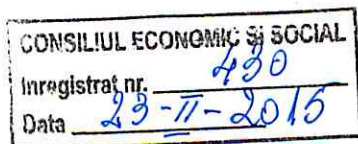 CONSILIUL ECONOMIC ȘI SOCIAL
Inregistrat nr. 430
Data 23-II-2015